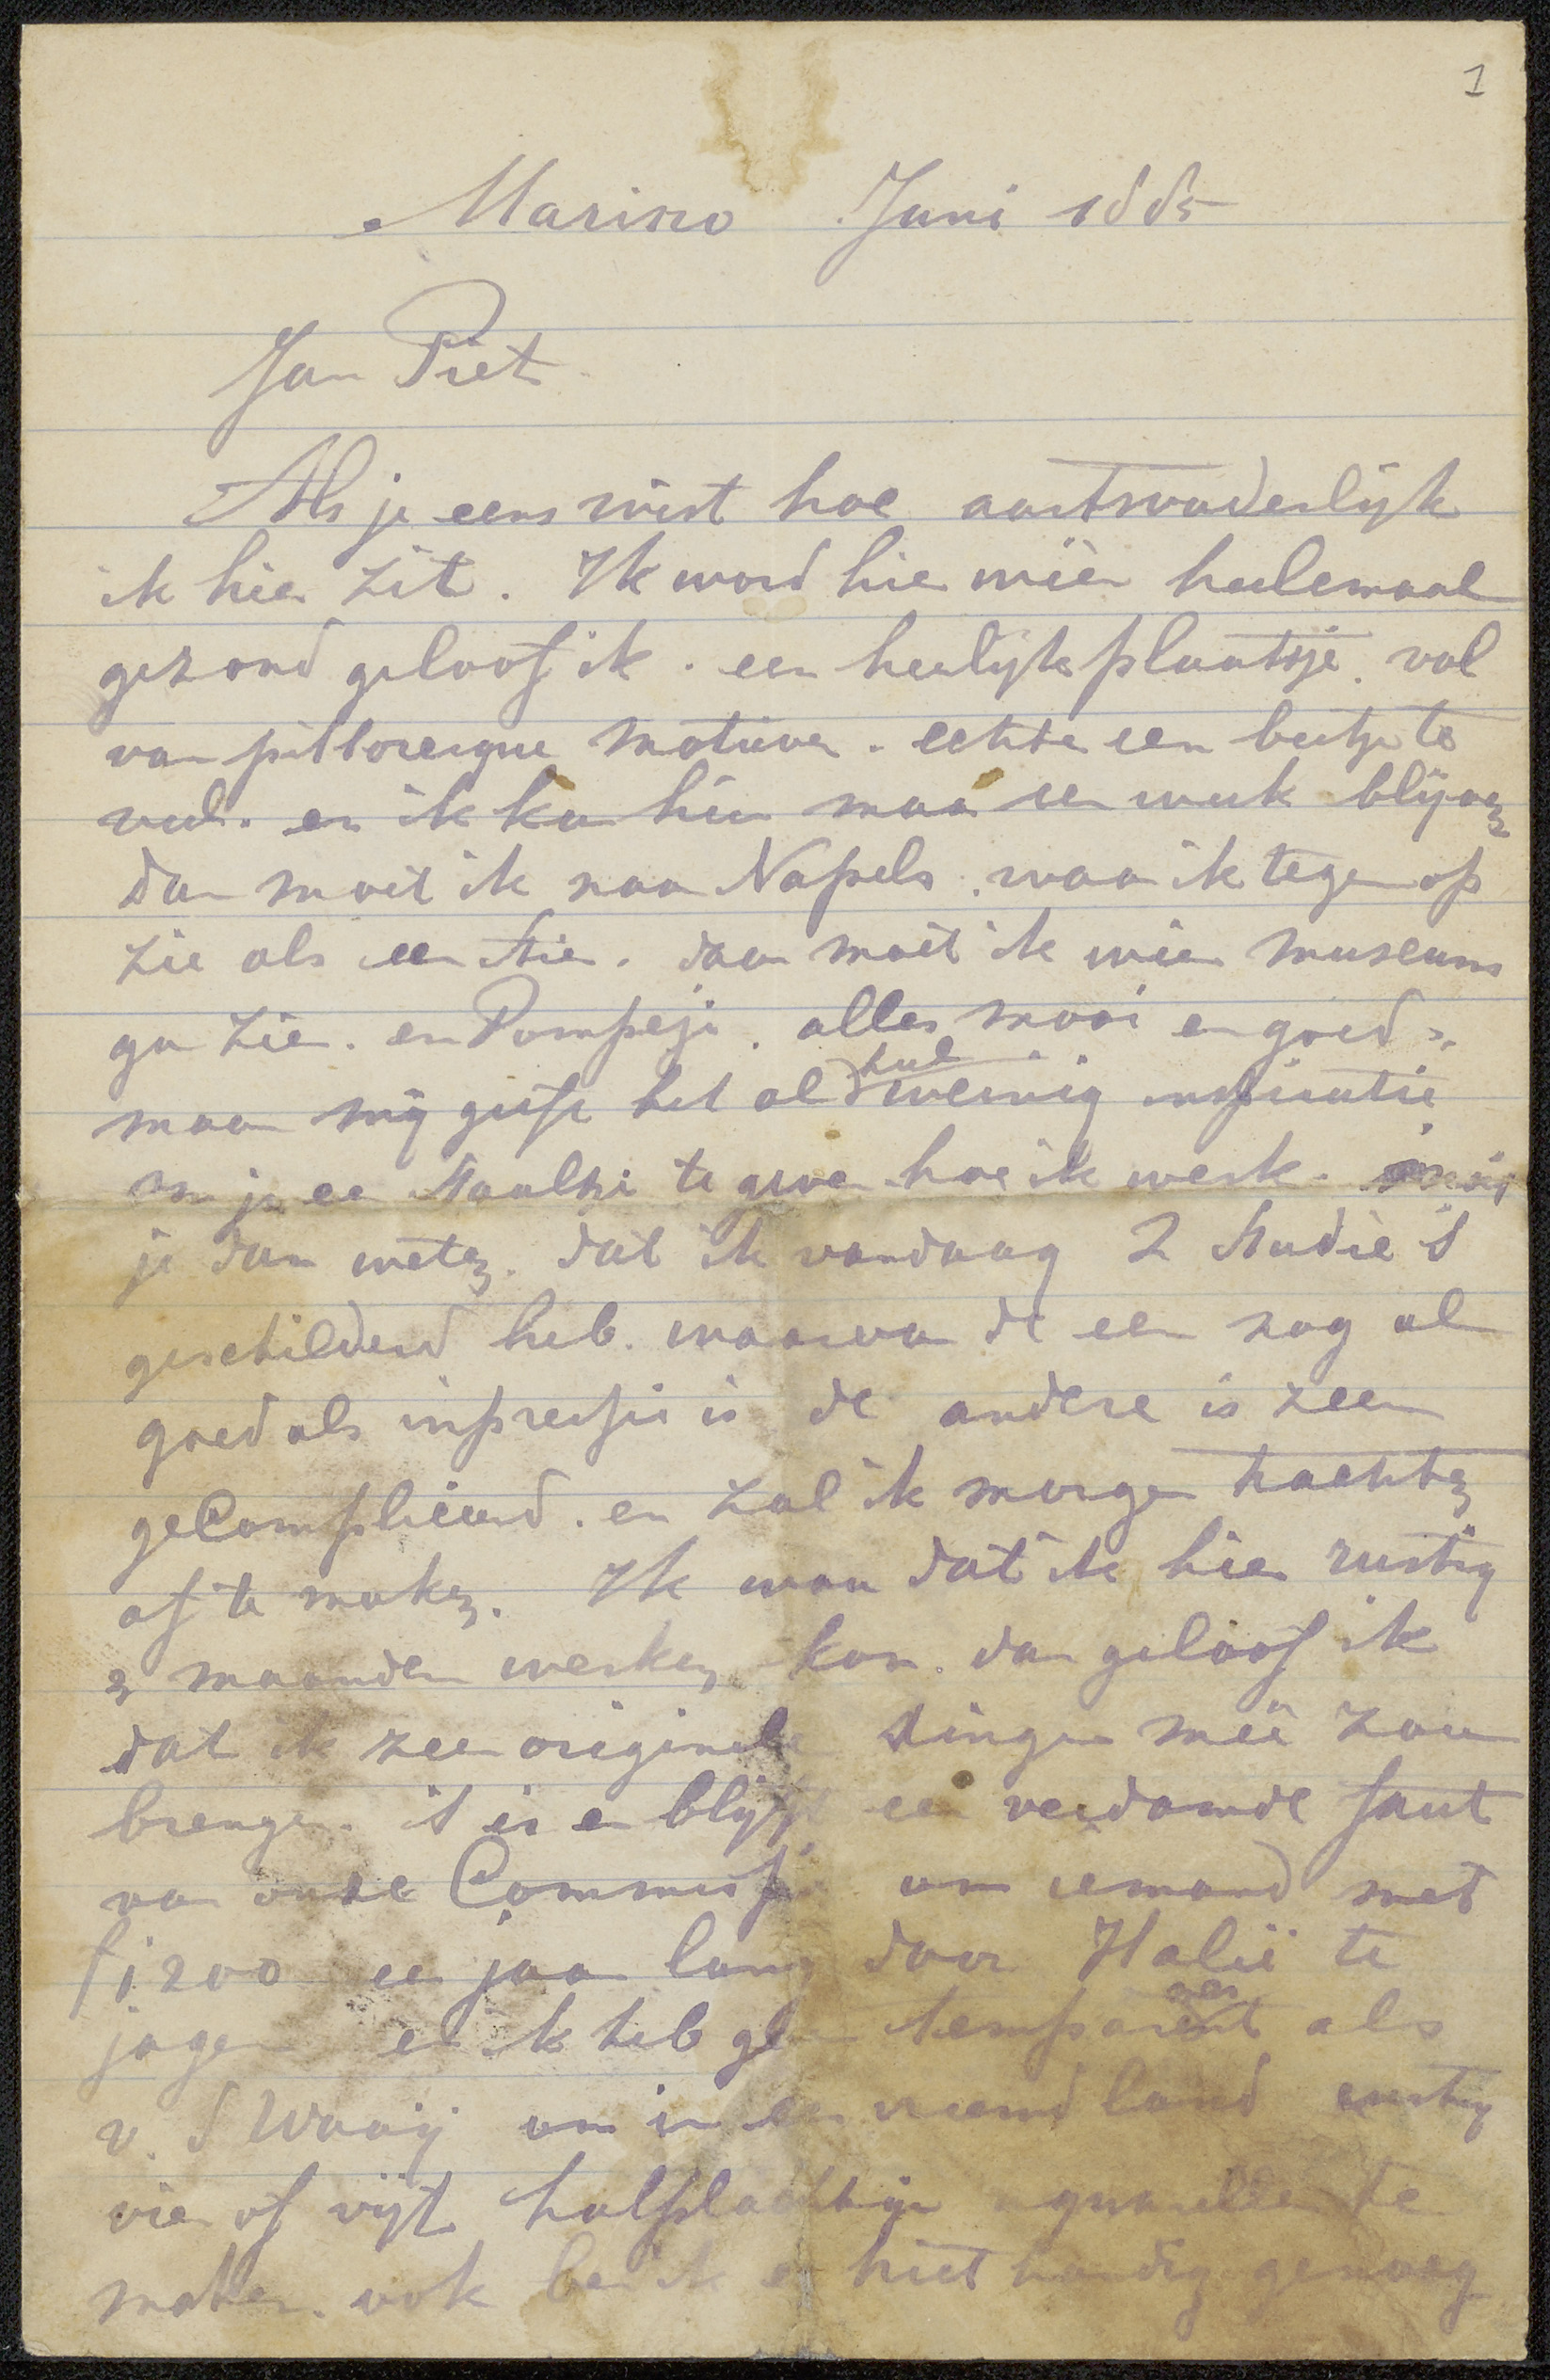 1
Marino Juni 1885
Jan Piet
Als je eens wist hoe aartsvaderlijk
ik hier zit. Ik word hier wièr heelemaal
gezond geloof ik. een heerlijk plaatsje. vol
van pittoresque motieven. echter een beetje te
veel. en ik kan hier maar een week blijven
dan moet ik naar Napels. waar ik tegen op
zie als een stier. daar moet ik wier museums
gaa zien. en Pompeji. alles mooi en goed.
maar mij geeft het al heel weinig inspiratie
om je een staaltje te geven hoe ik werk. moet
je dan weten. dat ik vandaag 2 studie's
geschilderd heb. waarvan de een nog al
goed als impressie is de andere is zeer
gecompliceerd. en zal ik morgen trachten
af te maken. Ik wou dat ik hier rustig
3 maanden werken kon. dan geloof ik
dat ik zeer origineele dingen meê zou
brengen. 't is en blijft een verdomde faut
van onze Commissie om iemand met
f 1200 een jaar lang door Italië te
jagen en ik heb geen temperament als
v. d Waaij om in een vreemd land rustig
vier of vijf halfslachtige aquarellen te
maken. ook ben ik er niet handig genoeg